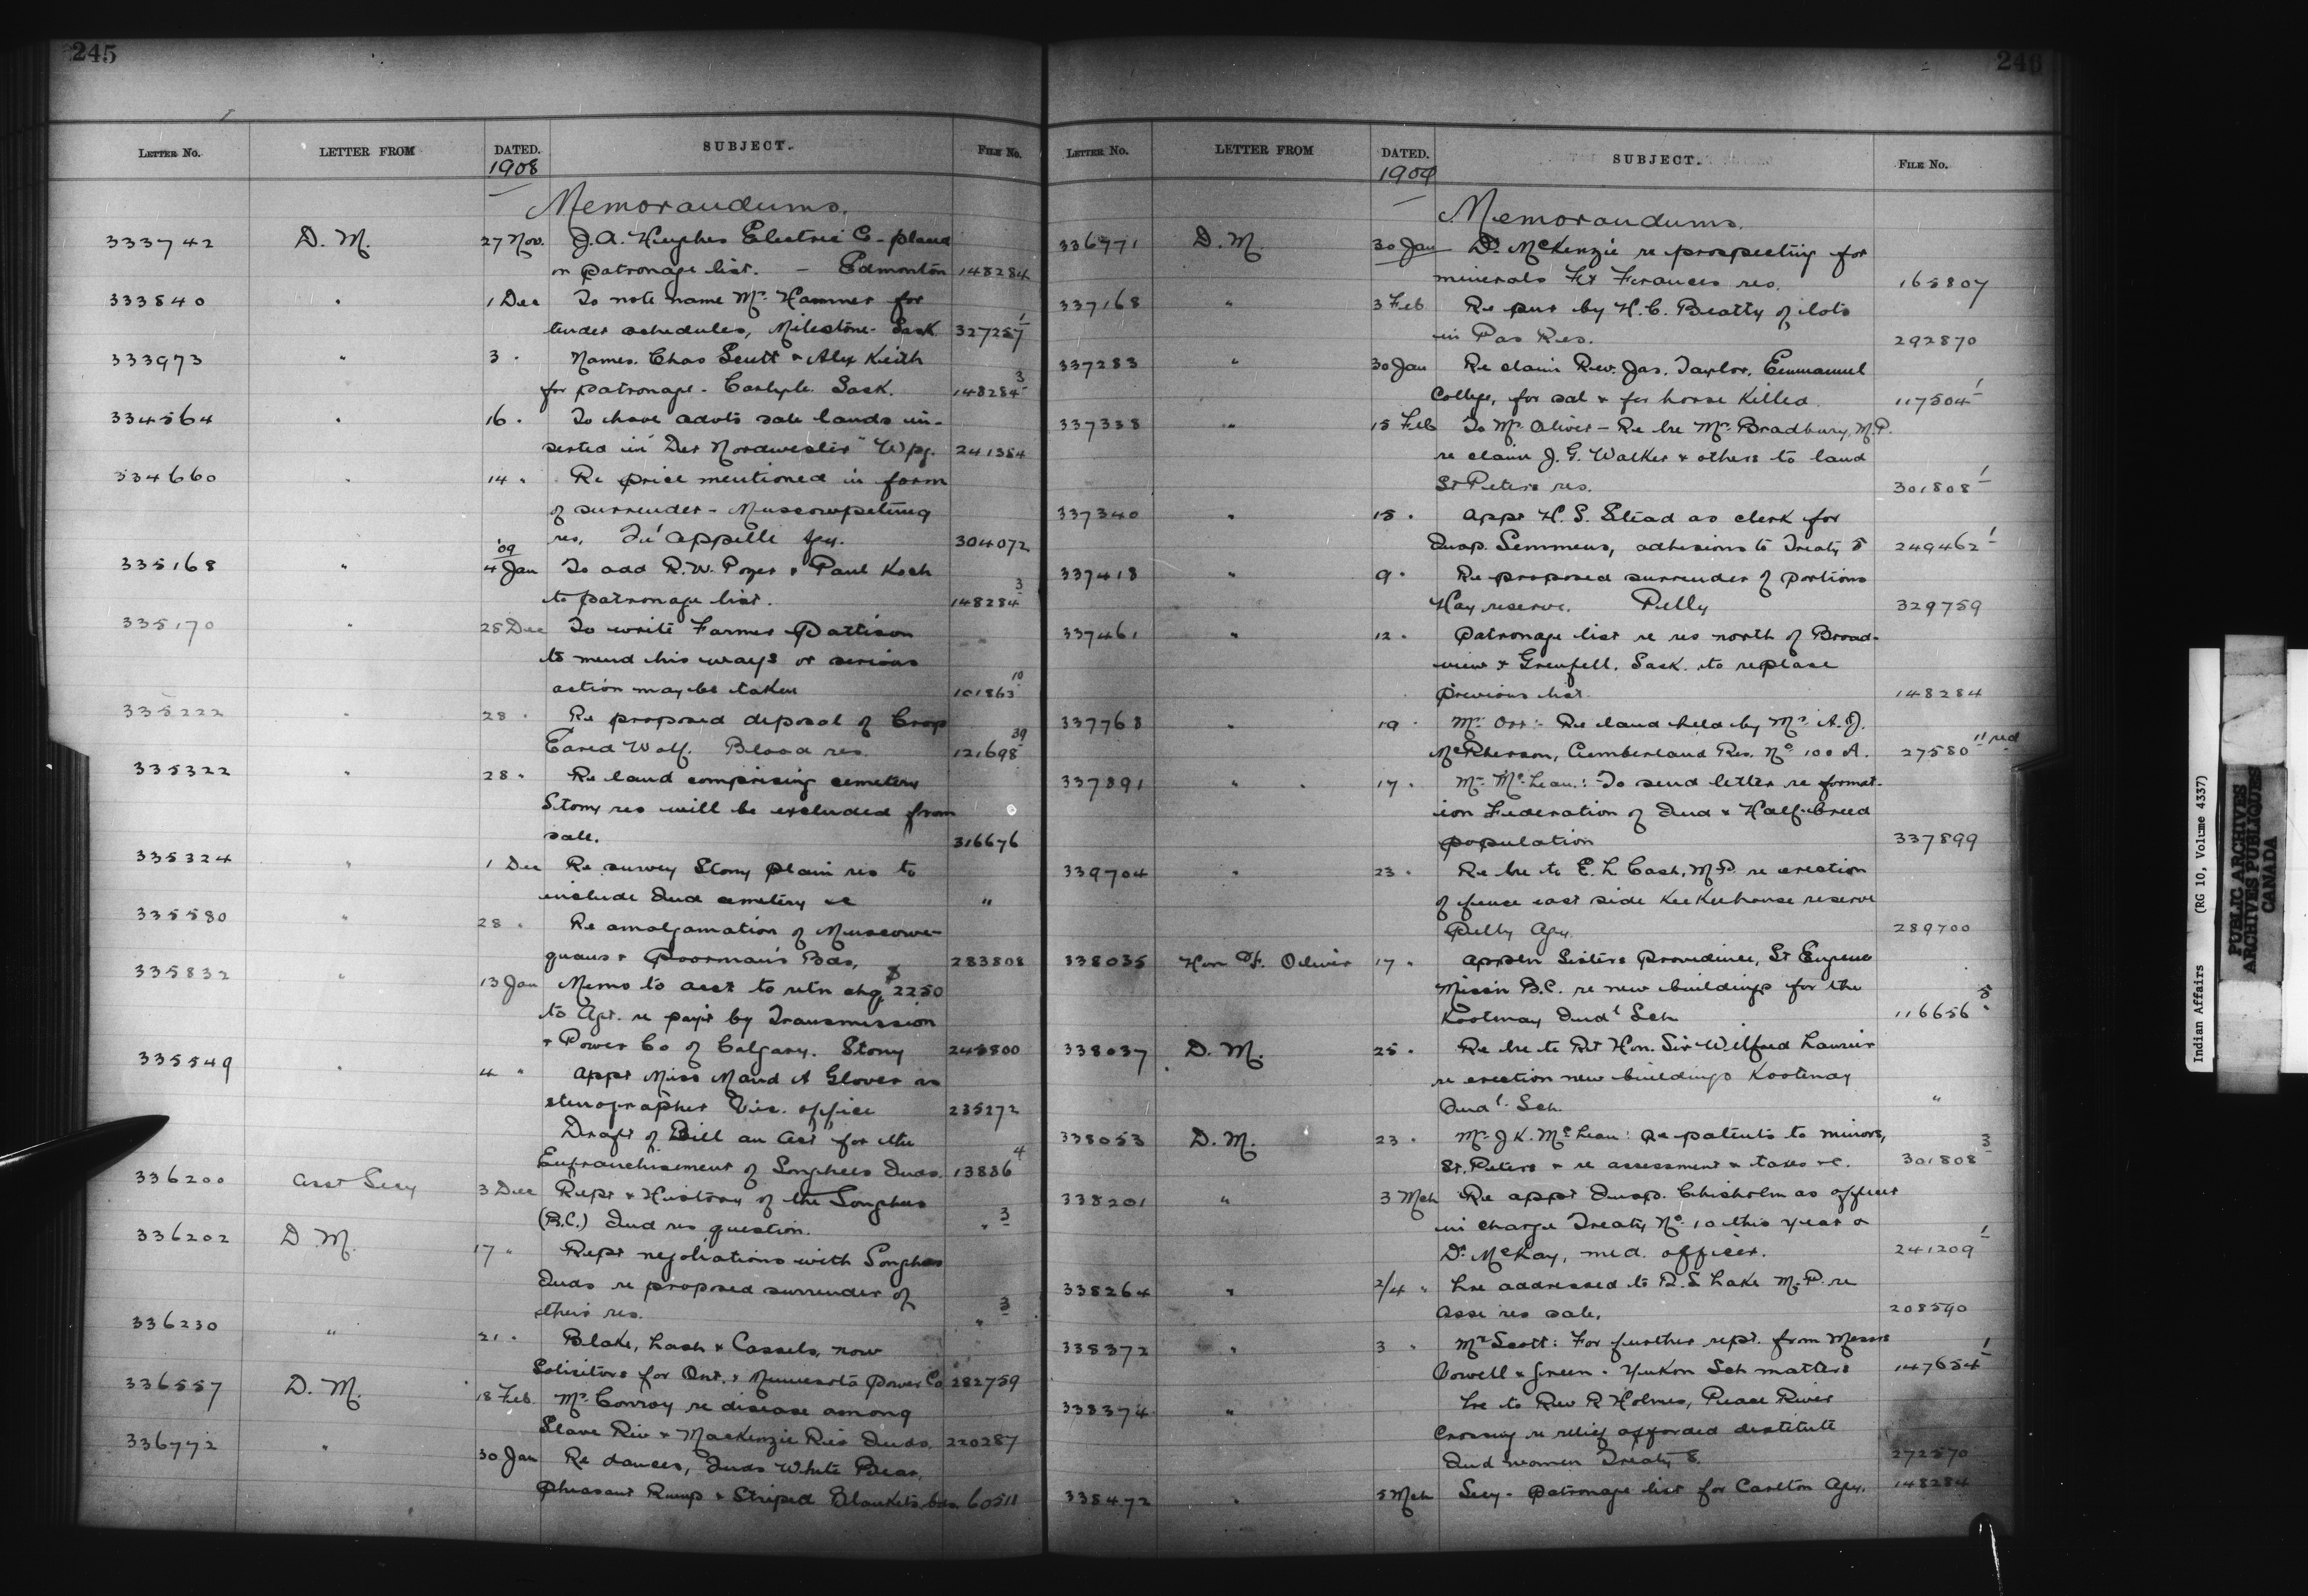 245
LETTER NO. LETTER FROM DATED. SUBJECT. FILE NO.
1908
Memorandums.
333742 D. M. 27 Nov. J. A. Hughes Electric Co - placed
on patronage list. - Edmonton 148284
333840 " 1 Dec To note name Mr. Hammer for
tender schedules, Milestone - Sask 327257 1
333973 " 3 " Names. Chas Scutt & Alex Keith
for patronage - Carlyle. Sask. 148284 3
334564 " 16 " To have advts sale lands in-
serted in "Der Nordwesten" Wpg. 241384
334660 " 14 " Re price mentioned in form
of surrender - Muscowpetung
res, Qu'Appelle Agy. 304072
'09
335168 " 4 Jan To add R. W. Poyer & Paul Koch
to patronage list. 148284 3
335170 " 28 Dec To write Farmer Pattison
to mend his ways or serious
action may be taken 101863 10
335222 " 28 " Re proposed deposal of Crop
Eared Wolf. Blood res. 121698 39
335322 " 28 " Re land comprising cemetery
Stony res will be excluded from
sale. 316676
335324 " 1 Dec Re survey Stony Plain res to
include Ind cemetery &c "
335580 " 28 " Re amalgamation of Muscowe-
quans & Poorman's Bds, 283808
335832 " 13 Jan Memo to acct to retn chq $2250
to Agt. re payt by Transmission
& Power Co of Calgary. Stony 245800
335549 " 4 " Appt Miss Maud A Glover as
stenographer Vic. office 235272
Draft of Bill an Act for the
Enfranchisement of Songhees Inds. 13886 4
336200 Asst Secy 3 Dec Rept & History of the Songhees
(B.C.) Ind res question. " 3
336202 D. M. 17 " Rept negotiations with Songhees
Inds re proposed surrender of
their res. " 3
336230 " 21 " Blake, Lash & Cassels, now
Solicitors for Ont. & Minnesota Power Co 282759
336557 D. M. 18 Feb. Mr. Conroy re disease among
Slave Riv & MacKenzie Riv Inds. 220287
336772 " 30 Jan Re dances, Inds White Bear,
Pheasant Rump & Striped Blankets bds 60511
246
LETTER NO. LETTER FROM DATED. SUBJECT. FILE NO.
1909
Memorandums.
336771 D. M. 30 Jan Dr. McKenzie re prospecting for
minerals Ft Frances res. 165807
337168 " 3 Feb Re pur by H. C. Beatty of lots
in Pas Res. 292870
337283 " 30 Jan Re claim Rev. Jas. Taylor, Emmanuel
College, for sal & for horse killed 117504 1
337338 " 15 Feb To Mr. Oliver - Re lre Mr. Bradbury, M.P.
re claim J. G. Walker & others to land
St Peters res. 301808 1
337340 " 15 " Appt H. S. Stead as clerk for
Insp. Semmens, adhesions to Treaty 5 249462 1
337418 " 9 " Re proposed surrender of portions
Hay reserve. Pelly 329759
337461 " 12 " Patronage list re res north of Broad-
view & Grenfell. Sask. to replace
previous list 148284
337768 " 19 " Mr. Orr:- Re land held by Mr. A. J.
McPherson, Cumberland Res. No 100 A. 27580 11 red
337891 " 17 " Mr. McLean.: To send letter re format-
ion Federation of Ind & Half-breed
population 337899
339704 " 23 " Re lre to E. L Cash, M.P. re erection
of fence east side Keekeehouse reserve
Pelly Agy. 289700
338035 Hon F. Oliver 17 " Appln Sisters Providence, St Eugene
Missn B.C. re new buildings for the
Kootenay Indl Sch 116656 5
338037 D. M. 25 " Re lre to Rt Hon. Sir Wilfred Laurier
re erection new buildings Kootenay
Indl. Sch. "
338053 D. M. 23 " Mr J K. McLean: Re patents to minors,
St. Peters & re assessment & taxes &c. 301808 3
338201 " 3 Mch Re appt Insp. Chisholm as officer
in charge Treaty No. 10 this year &
Dr. McKay, med. officer. 241209 1
338264 " 2/4 " Lre addressed to R. S Lake M.P. re
Asse res sale. 208590
338372 " 3 " Mr Scott: For further rept. from Messrs
Vowell & Green - Yukon Sch matters 147654 1
338374 " Lre to Rev R Holmes, Peace River
Crossing re relief afforded destitute
Ind women Treaty 8. 272570
338472 " 5 Mch Secy - Patronage list for Carlton Agy. 148284
Indian Affairs (RG 10, Volume 4337)
PUBLIC ARCHIVES
ARCHIVES PUBLIQUES
CANADA